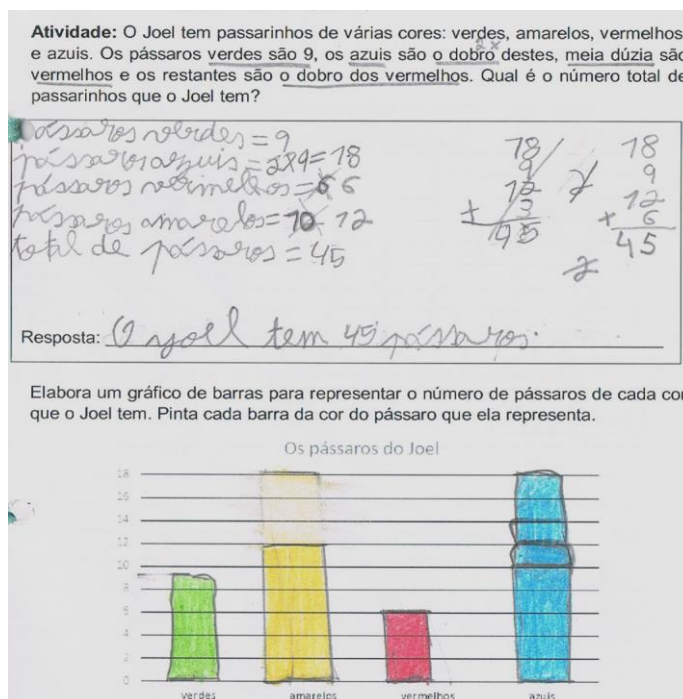 Atividade: O Joel tem passarinhos de várias cores: verdes, amarelos, vermelhos
e azuis. Os pássaros verdes são 9, os azuis são o dobro destes, meia dúzia são
2x
vermelhos e os restantes são o dobro dos vermelhos. Qual é o número total de
passarinhos que o Joel tem?
pássaros verdes = 9
pássaros azuis = 2x9= 18
pássaros vermelhos = 6
pássaros amarelos = 10 12
total de pássaros = 45
18
9
12
3
+
45
18
9
12
+ 6
45
Resposta: O Joel tem 45 pássaros.
Elabora um gráfico de barras para representar o número de pássaros de cada cor
que o Joel tem. Pinta cada barra da cor do pássaro que ela representa.
Os pássaros do Joel
18
16
14
12
10
8
6
4
2
0
verdes amarelos vermelhos azuis